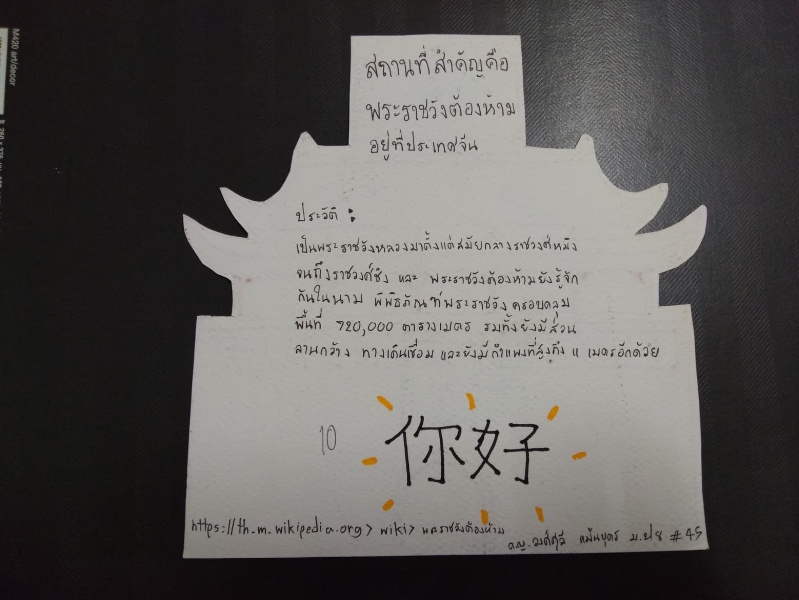 M420 art/decor
สถานที่สำคัญคือ
พระราชวังต้องห้าม
อยู่ที่ประเทศจีน
ประวัติ :
เป็นพระราชวังหลวงมาตั้งแต่สมัยกลางราชวงศ์หมิง
จนถึงราชวงศ์ชิง และ พระราชวังต้องห้ามยังรู้จัก
กันในนาม พิพิธภัณฑ์พระราชวัง ครอบคลุม
พื้นที่ 720,000 ตารางเมตร รมทั้งยังมีส่วน
ลานกว้าง ทางเดินเชื่อม และยังมีกำแพงที่สูงถึง 11 เมตรอีกด้วย
10
你好
https://th.m.wikipedia.org> wiki> พระราชวังต้องห้าม
ด.ญ. ม.4/8 #45